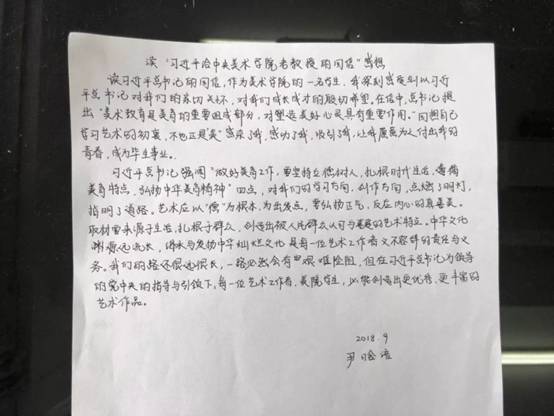 读“习近平给中央美术学院老教授的回信”感想
读习近平总书记的回信，作为美术学院的一名学生，我深刻感受到以习近
平总书记对我们的亲切关怀，对我们成长成才的殷切希望。在信中，总书记提
出“美术教育是美育的重要组成部分，对塑造美好心灵具有重要作用。”回想自己
学习艺术的初衷，不也正是“美”感染了我，感动了我，吸引了我，让我愿意为之付出我的
青春，成为毕生事业。
习近平总书记强调“做好美育工作，要坚持立德树人，扎根时代生活，遵循
美育特点，弘扬中华美育精神”四点，对我们的学习方向，创作方向，点燃了明灯，
指明了道路。艺术应以“德”为根本，为出发点，要弘扬正气，反应内心的真善美。
取材要来源于生活，扎根于群众，创造出被人民群众认可与喜爱的艺术特色。中华文化
渊源远流长，传承与发扬中华灿烂文化是每一位艺术工作者义不容辞的责任与义
务。我们的路还很远很长，一路必然会有艰难险阻，但在习近平总书记为领导
的党中央的指导与引领下，每一位艺术工作者，美院学生，必能创造出更优秀，更丰富的
艺术作品。
2018.9